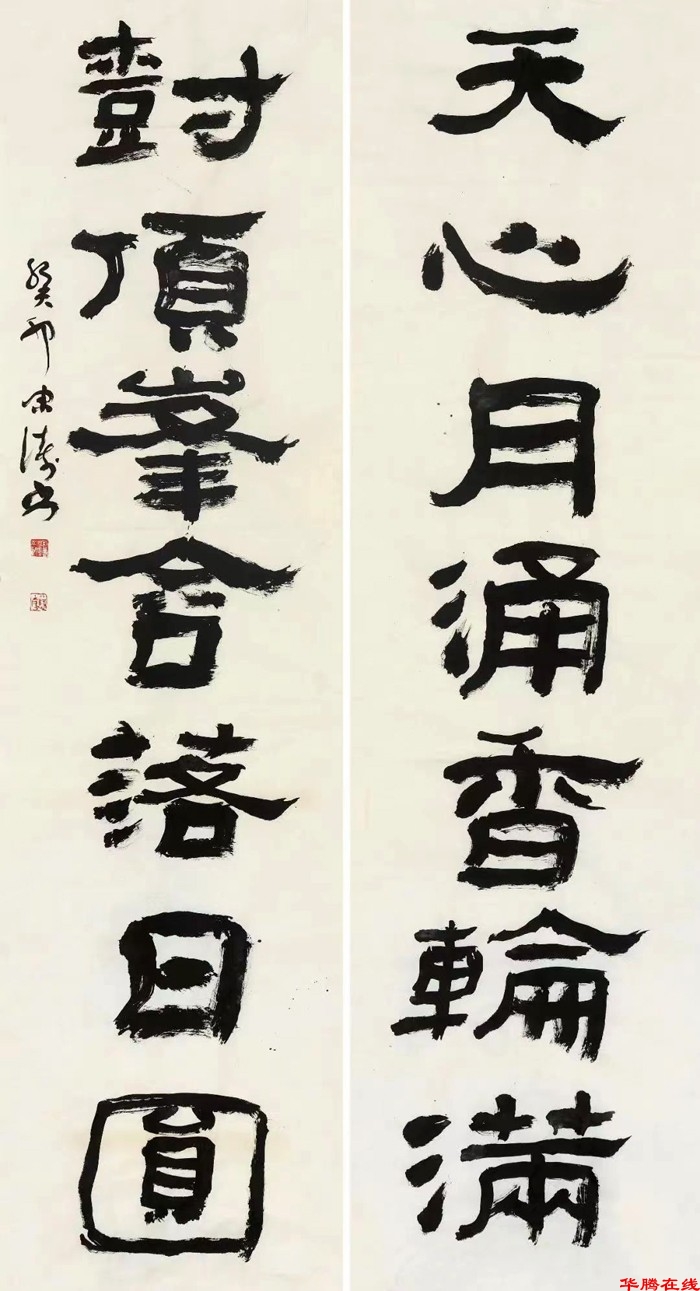 天心月涌香輪滿
對頂峯含落日圓
癸卯
华腾在线